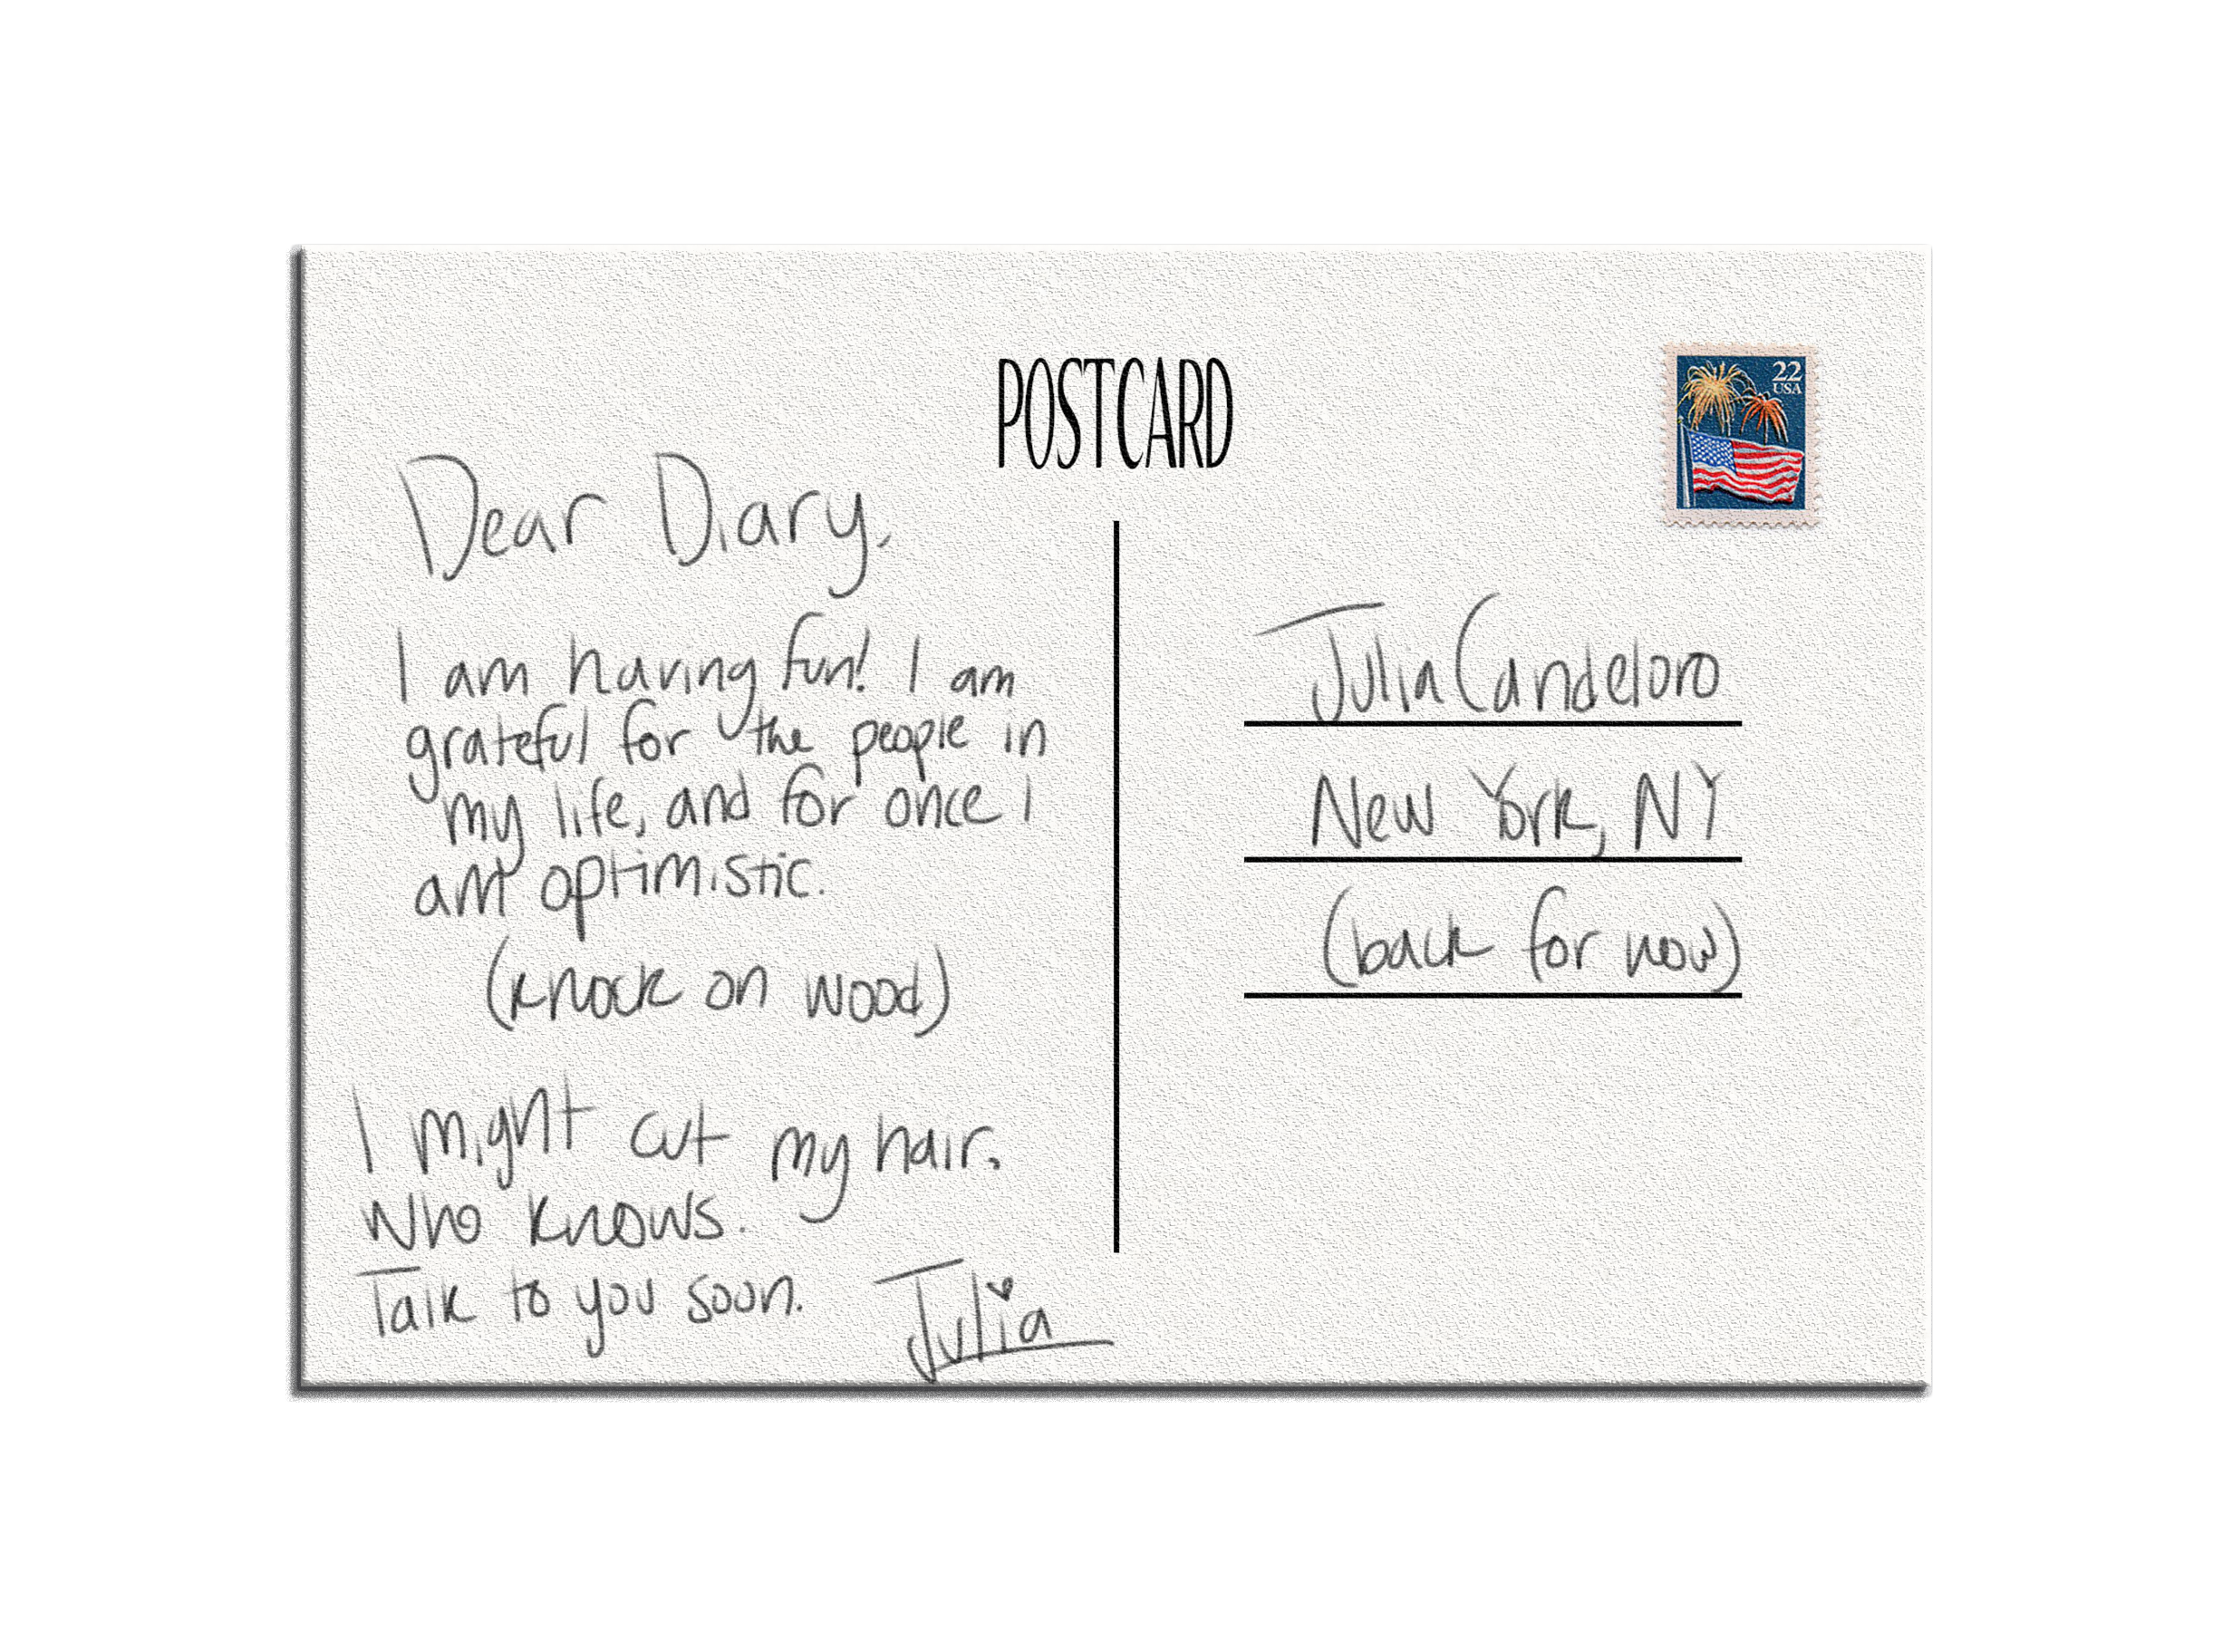 POSTCARD
22
USA
Dear Diary,
I am having fun! I am
grateful for the people in
my life, and for once I
am optimistic.
(knock on wood)
I might cut my hair.
Who knows.
Talk to you soon.
Julia
Julia Candeloro
New York, NY
(back for now)